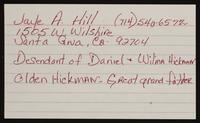 Jaye A. Hill (714) 540-6572
1505 W. Wilshire
Santa Ana, CA- 92704
Desendant of Daniel & Wilma Hickman
Olden Hickman- Great grand father